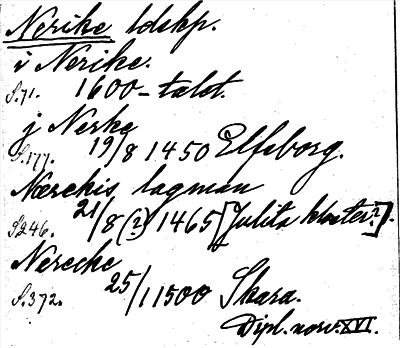 Nerike ldskp.
i Nerike.
S.71. 1600-talet.
j Nerke
S.177. 19/8 1450 Elfsborg.
Nærekis lagman
S246. 21/8(?) 1465 [Julita kloster?].
Nerecke
S.372. 25/1 1500 Skara.
Dipl. norv. XVI.